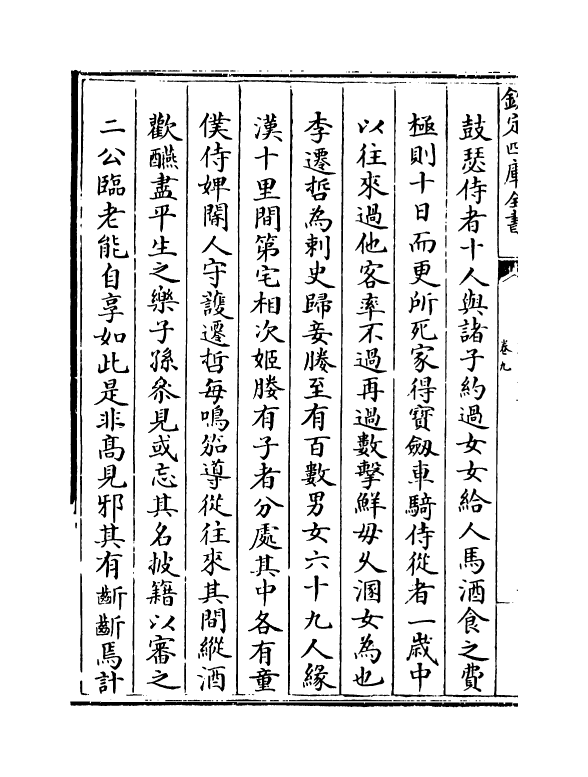 欽定四庫全書
卷九
鼓瑟侍者十人與諸子約過女女給人馬酒食之費
極則十日而更所死家得寶劔車騎侍從者一歲中
以往來過他客率不過再過數擊鮮毋久溷女為也
李遷哲為刺史歸妾媵至有百數男女六十九人緣
漢十里間第宅相次姬媵有子者分處其中各有童
僕侍婢閽人守護遷哲每鳴笳導從往來其間縱酒
歡醼盡平生之樂子孫叅見或忘其名披籍以審之
二公臨老能自享如此是非髙見邪其有齗齗焉計